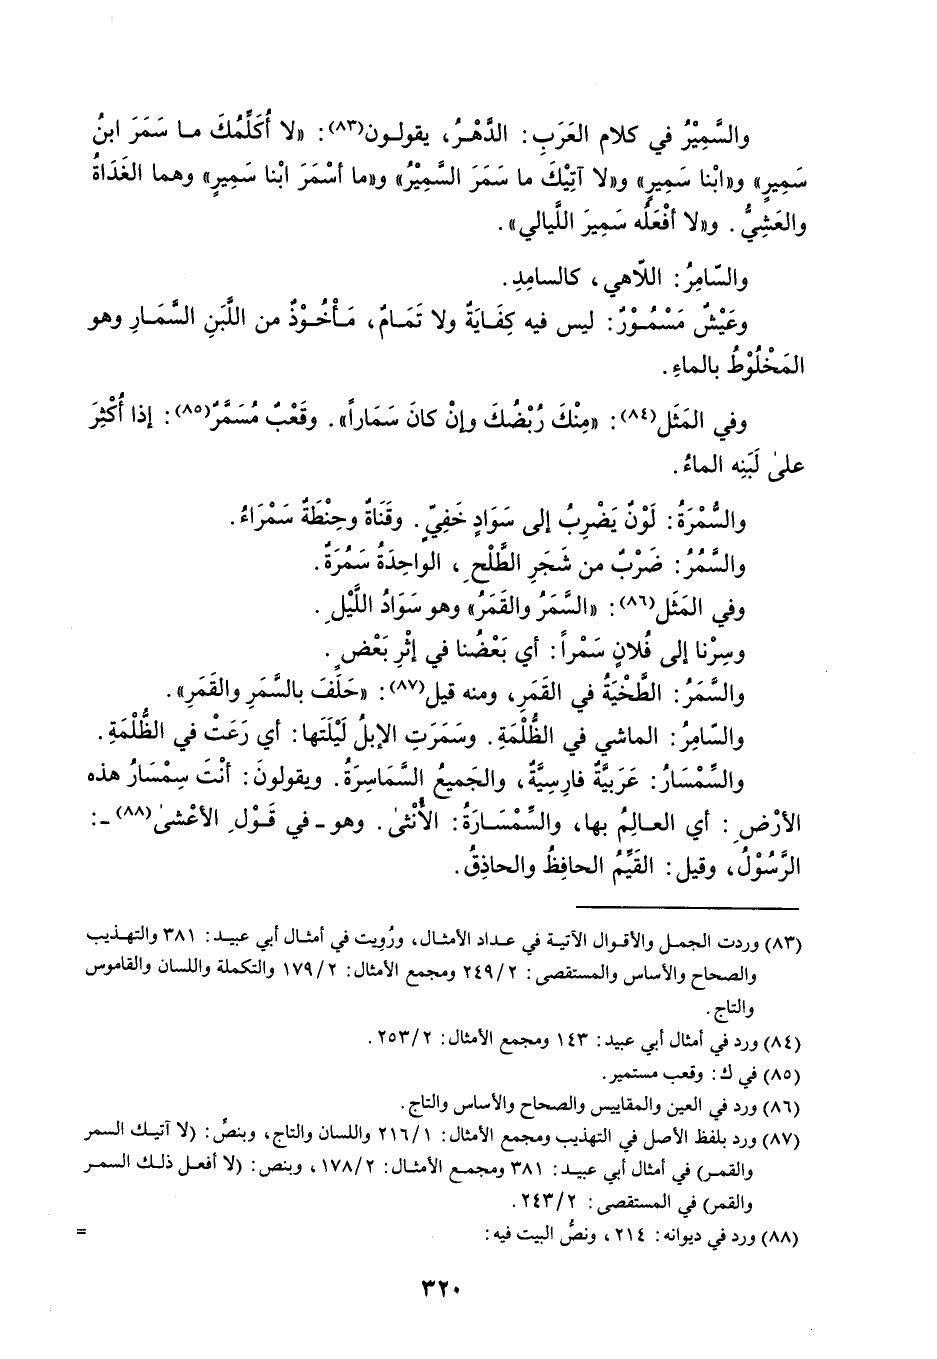 والسَّمِيْرُ في كلام العَرَبِ: الدَّهْرُ، يقولون(٨٣): «لا أُكَلِّمُكَ ما سَمَرَ ابنُ
سَمِيرٍ» و«ابْنا سَمِيرٍ» و«لا آتِيْكَ ما سَمَرَ السَّمِيْرُ» و«ما أسْمَرَ ابْنا سَمِيرٍ» وهما الغَدَاةُ
والعَشِيُّ. و«لا أفْعَلُه سَمِيرَ اللَّيالي».
والسّامِرُ: اللاّهي، كالسامِدِ.
وعَيْشٌ مَسْمُوْرٌ: ليس فيه كِفَايَةٌ ولا تَمَامٌ، مَأْخُوْذٌ من اللَّبَنِ السَّمَارِ وهو
المَخْلُوْطُ بالماءِ.
وفي المَثَل(٨٤): «مِنْكَ رُبْضُكَ وإنْ كانَ سَمَاراً». وقَعْبٌ مُسَمَّرٌ(٨٥): إذا أُكْثِرَ
على لَبَنِه الماءُ.
والسُّمْرَةُ: لَوْنٌ يَضْرِبُ إلى سَوَادٍ خَفِيٍّ. وقَنَاةٌ وحِنْطَةٌ سَمْرَاءُ.
والسَّمُرُ: ضَرْبٌ من شَجَرِ الطَّلْحِ، الواحِدَةُ سَمُرَةٌ.
وفي المَثَل(٨٦): «السَّمَرُ والقَمَرُ» وهو سَوَادُ اللَّيْلِ.
وسِرْنا إلى فُلانٍ سَمْراً: أي بَعْضُنا في إثْرِ بَعْضٍ.
والسَّمَرُ: الطَّخْيَةُ في القَمَرِ، ومنه قيل(٨٧): «حَلَفَ بالسَّمَرِ والقَمَرِ».
والسّامِرُ: الماشي في الظُّلْمَةِ. وسَمَرَتِ الإبلُ لَيْلَتَها: أي رَعَتْ في الظُّلْمَةِ.
والسِّمْسَارُ: عَرَبيَّةٌ فارِسِيَّةٌ، والجَميعُ السَّمَاسِرَةُ. ويقولونَ: أنْتَ سِمْسَارُ هذه
الأرْضِ: أي العالِمُ بها، والسِّمْسَارَةُ: الأُنْثى. وهو ـ في قَوْلِ الأعْشى(٨٨) ـ:
الرَّسُوْلُ، وقيل: القَيِّمُ الحافِظُ والحاذِقُ.
(٨٣) وردت الجمل والأقوال الآتية في عداد الأمثال، ورُويت في أمثال أبي عبيد: ٣٨١ والتهذيب
والصحاح والأساس والمستقصى: ٢/ ٢٤٩ ومجمع الأمثال: ٢/ ١٧٩ والتكملة واللسان والقاموس
والتاج.
(٨٤) ورد في أمثال أبي عبيد: ١٤٣ ومجمع الأمثال: ٢/ ٢٥٣.
(٨٥) في ك: وقعب مستمير.
(٨٦) ورد في العين والمقاييس والصحاح والأساس والتاج.
(٨٧) ورد بلفظ الأصل في التهذيب ومجمع الأمثال: ١/ ٢١٦ واللسان والتاج، وبنصِّ: (لا آتيك السمر
والقمر) في أمثال أبي عبيد: ٣٨١ ومجمع الأمثال: ٢/ ١٧٨، وبنص: (لا أفعل ذلك السمر
والقمر) في المستقصى: ٢/ ٢٤٣.
(٨٨) ورد في ديوانه: ٢١٤، ونصُّ البيت فيه: =
٣٢٠